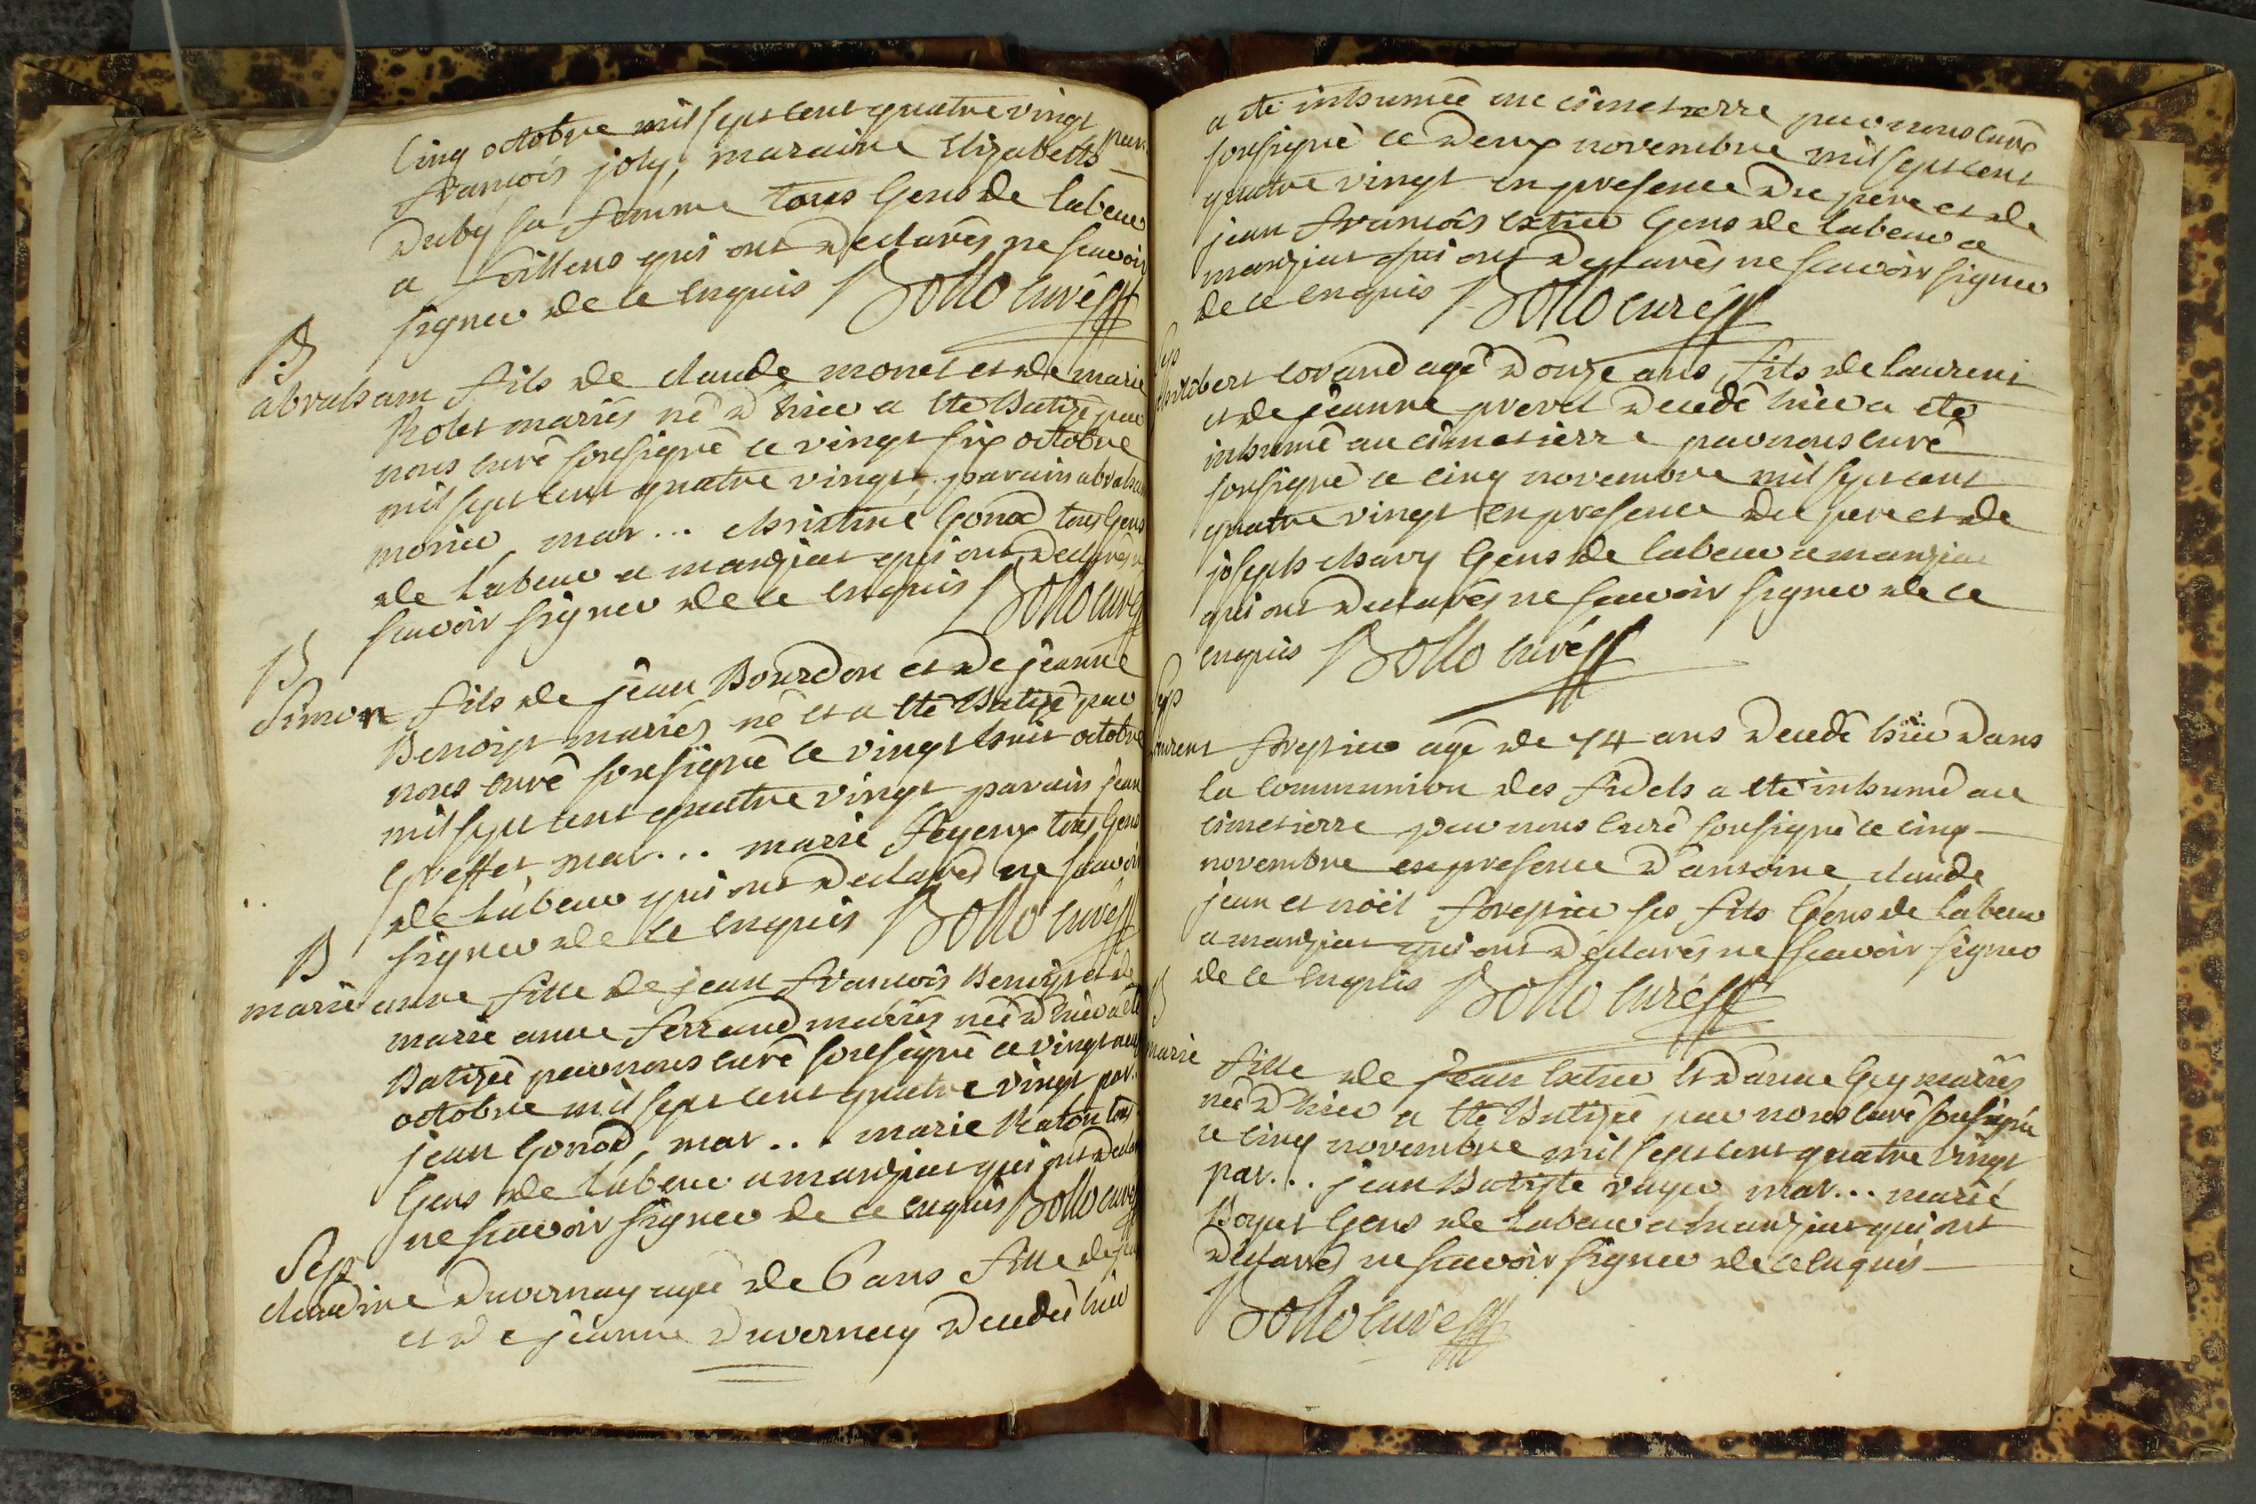 Cinq octobre mil sept cent quatre vingt par.
francois joly, maraine Elizabeth
Duby sa femme tous Gens de labeur
a foillens qui ont declarés ne scavoir
signer de ce enquis Bollo curé
B
abraham fils de claude monet et de marie
Rolet mariés né d'hier a eté Batizé par
nous curé soussigné ce vingt six octobre
mil sept cent quatre vingt, parain abraham
monier, mar... christine Gonod tous Gens
de labeur a manziat qui ont declarés ne
scavoir signer de ce enquis Bollo curé
B
Simon fils de jean Bourdon et de jeanne
Benoist mariés né et a eté Batizé par
nous curé soussigné ce vingt huit octobre
mil sept cent quatre vingt parain jean
Greffet, mar... marie feyeux tous Gens
de labeur qui ont declarés ne scavoir
signer de ce enquis Bollo curé
B
marie anne fille de jean francois Benoist et de
marie anne ferrand mariés née d'hier a eté
Batizée par nous curé soussigné ce vingt neuf
octobre mil sept cent quatre vingt par.
jean Gonod, mar... marie Raton tous
Gens de labeur a manziat qui ont declarés
ne scavoir signer de ce enquis Bollo curé
Sep
claudine Duvernay agée de 6 ans fille de jean
et de jeanne Duvernay decedée hier
a eté inhumée au cimetierre par nous curé
soussigné ce deux novembre mil sept cent
quatre vingt en presence du pere et de
jean francois Extier Gens de labeur a
manziat qui ont declarés ne scavoir signer
de ce enquis Bollo curé
Sep
philibert Lorand agé d'onze ans, fils de laurent
et de jeanne prevel decedé hier a eté
inhumé au cimetierre par nous curé
soussigné ce cinq novembre mil sept cent
quatre vingt en presence du pere et de
joseph chavy Gens de labeur a manziat
qui ont declarés ne scavoir signer de ce
enquis Bollo curé
Sep
laurent forestier agé de 74 ans decedé hier dans
la communion des fidels a eté inhumé au
cimetierre par nous curé soussigné ce cinq
novembre en presence d'antoine, claude
jean et noël forestier ses fils Gens de labeur
a manziat qui ont déclarés ne scavoir signer
de ce enquis Bollo curé
B
marie fille de jean Extier et d'anne Guy mariés
née d'hier a eté Batizée par nous curé soussigné
ce cinq novembre mil sept cent quatre vingt
par... jean Batiste vayer mar... marie
Boyat Gens de labeur a manziat qui ont
declarés ne scavoir signer de ce enquis
Bollo curé